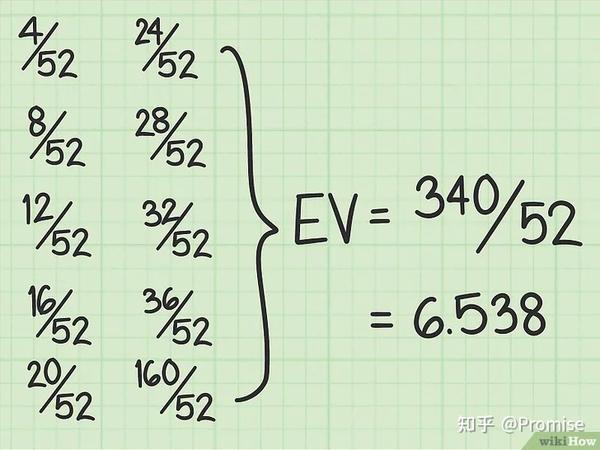 4/52 24/52
8/52 28/52
12/52 32/52
16/52 36/52
20/52 160/52
EV = 340/52
= 6.538
知乎 @Promise
wikiHow